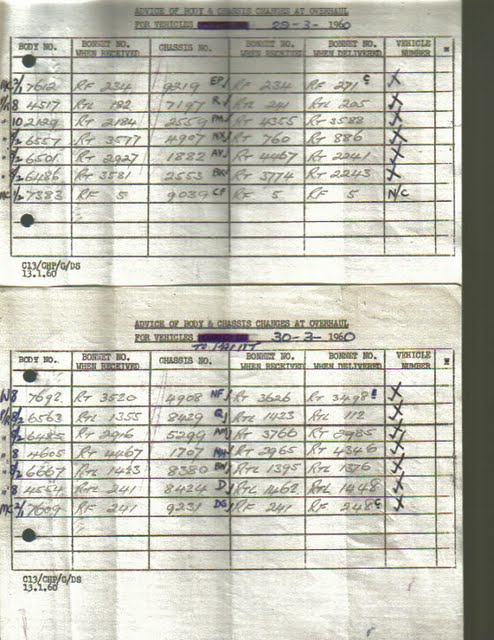 ADVICE OF BODY & CHASSIS CHANGES AT OVERHAUL
FOR VEHICLES 29-3-1960
BODY NO. BONNET NO. WHEN RECEIVED CHASSIS NO. BONNET NO. WHEN RECEIVED BONNET NO. WHEN DELIVERED VEHICLE NUMBER
7612 RF 234 9219 EP RF 234 RF 271 C X
8 4517 RTL 182 7197 R RTL 241 RTL 205 X
10 2129 RT 2184 2559 PM RT 4355 RT 3588 X
6557 RT 3577 4907 NX RT 760 RT 886 X
6501 RT 2927 1882 AY RT 4467 RT 2241 X
6486 RT 3581 2553 RT 3774 RT 2243 X
7383 RF 5 9039 CF RF 5 RF 5 N/C
C13/CHP/G/DS
13.1.60
ADVICE OF BODY & CHASSIS CHANGES AT OVERHAUL
FOR VEHICLES 30-3-1960
BODY NO. BONNET NO. WHEN RECEIVED CHASSIS NO. BONNET NO. WHEN RECEIVED BONNET NO. WHEN DELIVERED VEHICLE NUMBER
W8 7692 RT 3520 4908 NF RT 3626 RT 3498 X
6563 RTL 1355 8429 Q RTL 1423 RTL 112 X
6485 RT 2916 5299 RT 3766 RT 2985 X
8 4605 RT 4467 1707 RT 2965 RT 4346 X
6667 RTL 1423 8380 RTL 1395 RTL 1376 X
8 4554 RTL 241 8424 D RTL 1462 RTL 1448 X
7609 RF 241 9231 DG RF 241 RF 248 C X
C13/CHP/G/DS
13.1.60